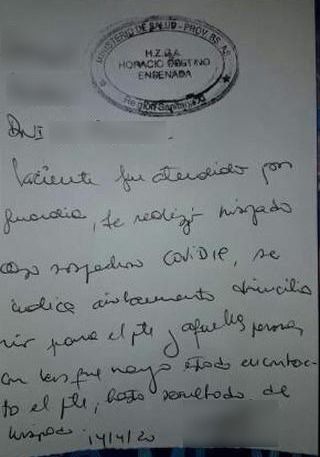 MINISTERIO DE SALUD - PROV. BS. AS.
H.Z.G.A.
HORACIO CESTINO
ENSENADA
Región Sanitaria XI
DNI
Paciente fue atendido por
guardia, se realizó hisopado
caso sospechoso COVID19, se
indica aislamiento domicilia
rio para el pte y aquellas personas
con las que haya estado en contac-
to el pte, hasta resultado de
hisopado. 14/4/20